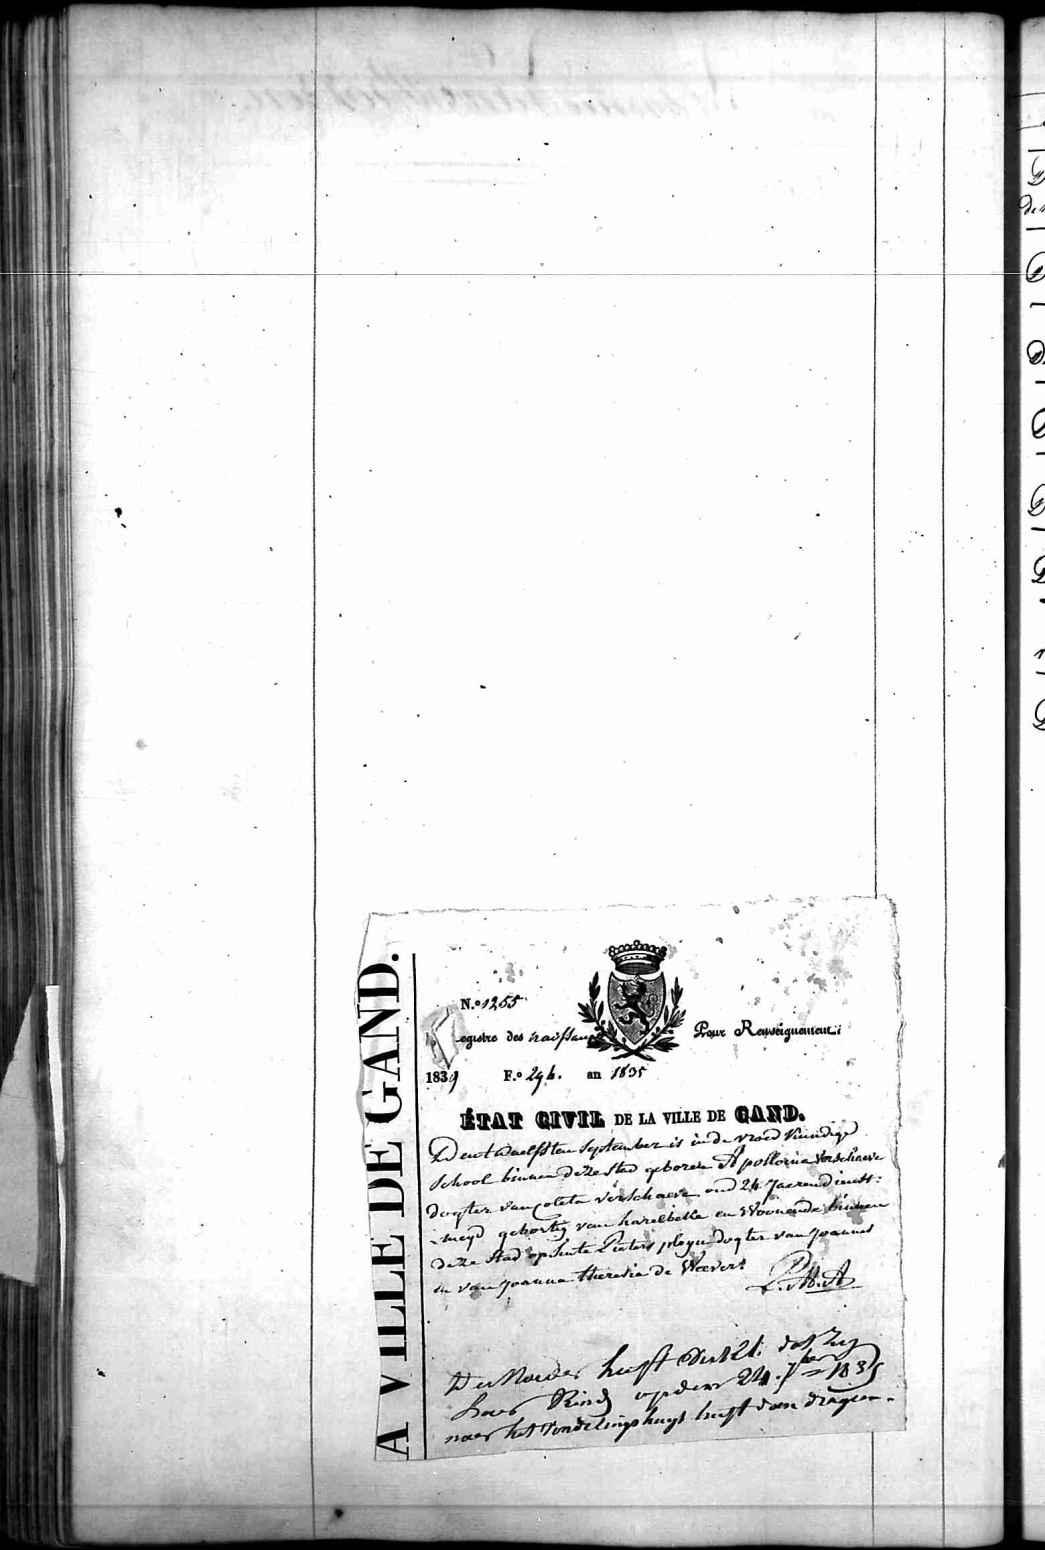 A VILLE DE GAND.
N.º 1255
egistre des naissan
Pour Renseignement:
1839 F.º 294. an 1835
ÉTAT CIVIL DE LA VILLE DE GAND.
Den twaelfsten September is in de vroed kundige
school binnen deze stad geboren Apollonia Verschaeve
dogter van Coleta verschaeve oud 24 Jaeren dienst:
meyd gebortig van harelbeke en Woonende binnen
deze stad op sente Pieters pleyn dogter van Joannes
en van Joanna theresia de Weevers
De Moeder heeft den 21. dat zy
haer Kind op den 24. 7ber 1835
naer het vondelingshuys heeft doen dragen.